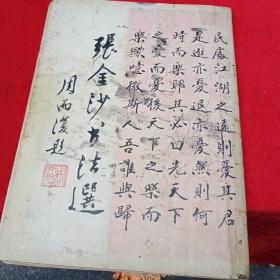 民處江湖之遠則憂其君
是進亦憂退亦憂然則何
時而樂耶其必曰先天下
之憂而憂後天下之樂而
樂歟噫微斯人吾誰與歸
張金沙書法選
周而復題